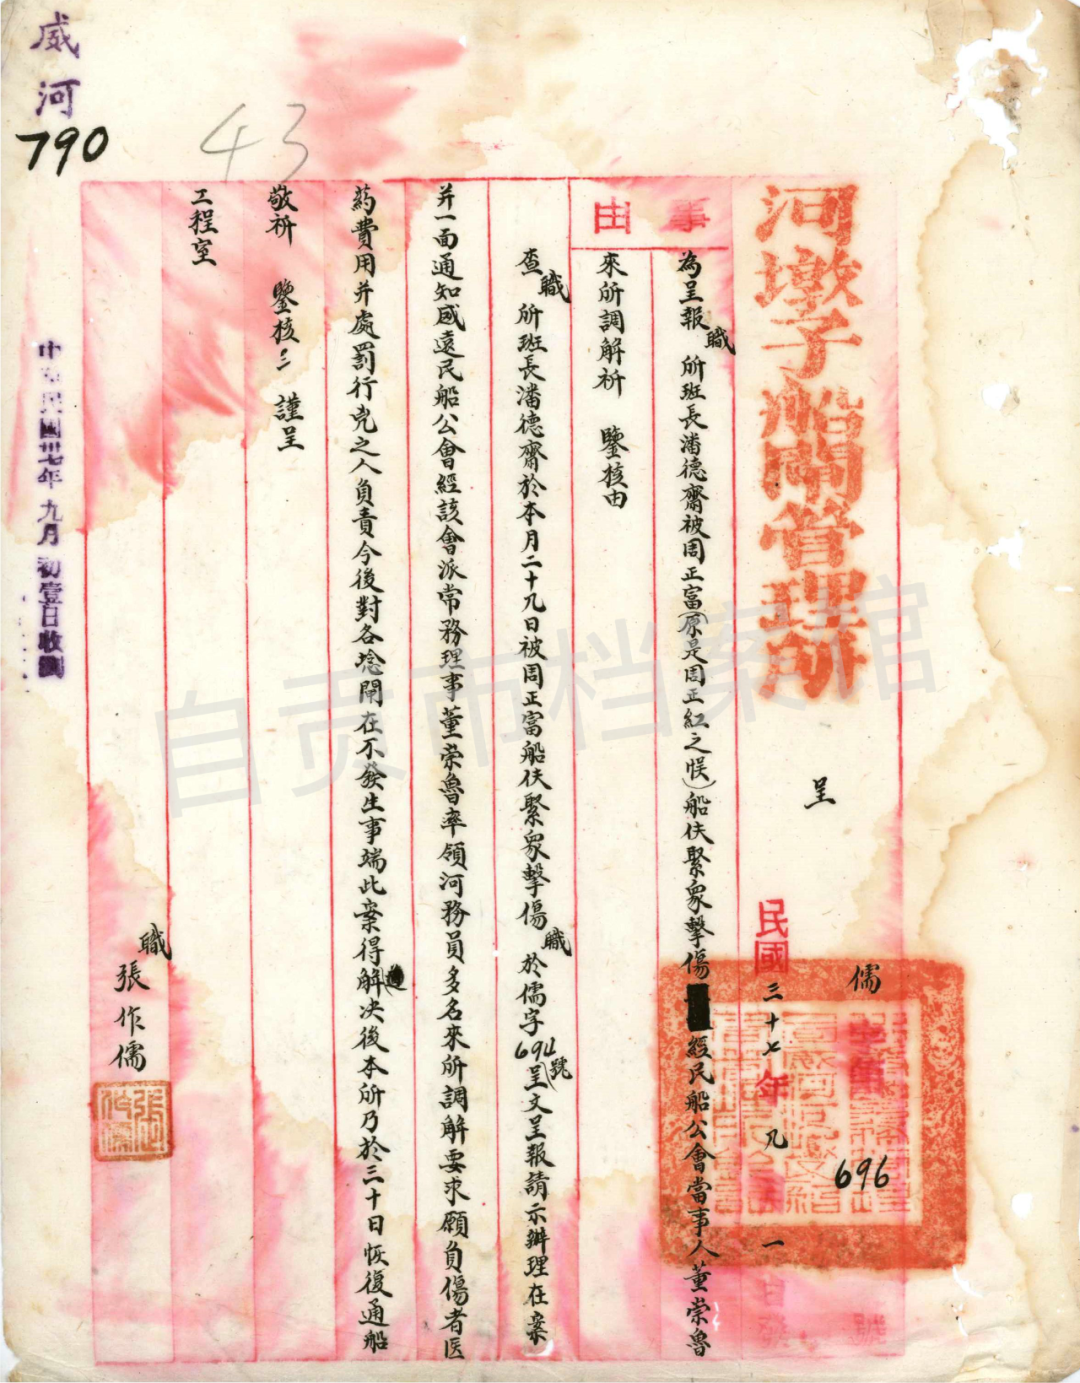 河墩子船閘管理所
呈
儒
字第
696
號
民國三十七年九月一日發
事由
為呈報職所班長潘德齋被周正富(原是周正紅之悮)船伕緊衆擊傷經民船公會當事人董崇魯
來所調解祈鑒核由
查職所班長潘德齋於本月二十九日被周正富船伕緊衆擊傷職於儒字694號呈文呈報請示辦理在案
并一面通知威遠民船公會經該會派常務理事董崇魯率領河務員多名來所調解要求願負傷者医
葯費用并處罰行兇之人負責今後對各埝閘在不發生事端此案得解決後本所乃於三十日恢復通船
敬祈鑒核 謹呈
工程室
職張作儒
中華民國卅七年九月初壹日收到
威河
790
43
自贡市档案馆